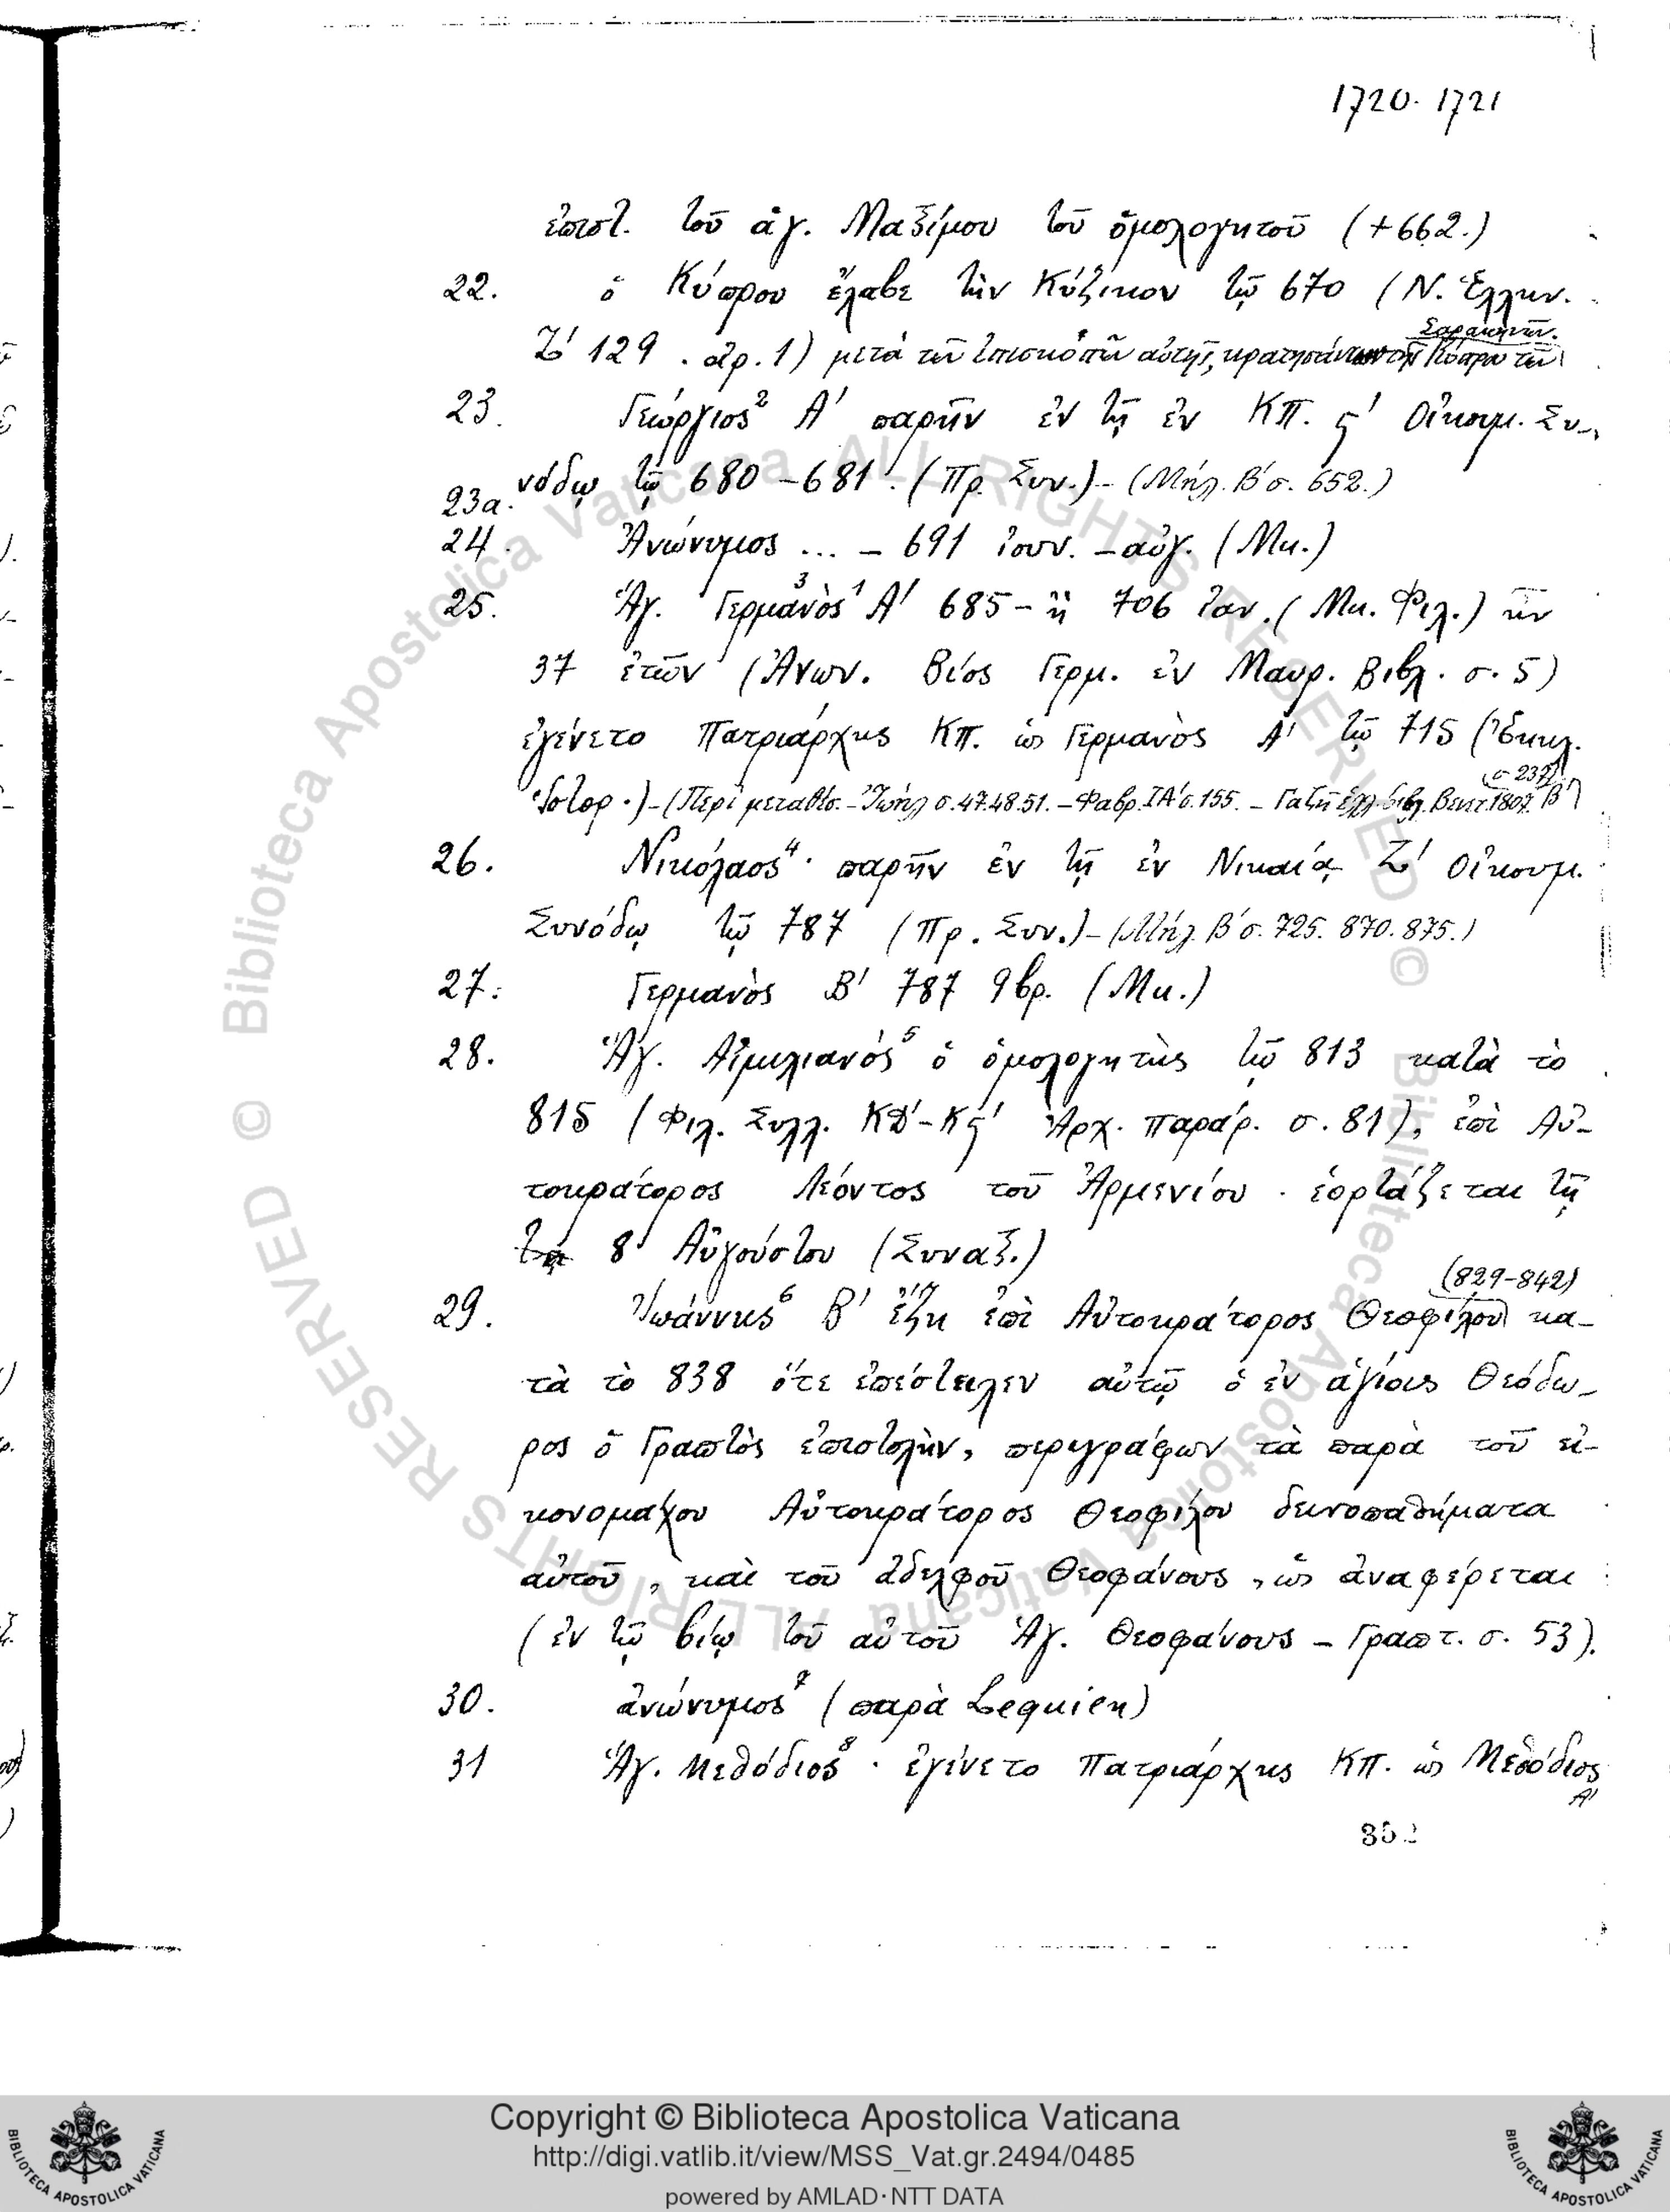 1720. 1721
ἐπιστ. τοῦ ἁγ. Μαξίμου τοῦ ὁμολογητοῦ (+662.)
22. ὁ Κύπρου ἔλαβε τὴν Κύζικον τῷ 670 (Ν. Ἑλλην.
Σαρακηνῶν.
Ζ' 129 . ἀρ. 1) μετὰ τῶν ἐπισκόπων αὐτῆς, κρατησάντων τὴν Κύπρον τῶν
23. Γεώργιος² Α' παρῆν ἐν τῇ ἐν ΚΠ. ϛ' Οἰκουμ. Συ-
νόδῳ τῷ 680-681. (Πρ. Συν.)-(Μήλ. Β' σ. 652.)
23α.
24. Ἀνώνυμος ... - 691 ἰουν. - αὐγ. (Μκ.)
25. Ἁγ. Γερμανὸς³ ¹ Α' 685 - ἢ 706 ἰαν. (Μκ. Φιλ.) ἦν
37 ἐτῶν (Ἀνων. Βίος Γερμ. ἐν Μαυρ. Βιβλ. σ. 5)
ἐγένετο Πατριάρχης ΚΠ. ὡς Γερμανὸς Α' τῷ 715 (Ἐκκλ.
(σ 237)
Ἱστορ.)-(Περὶ μεταθέσ. - Ἰωήλ σ. 47.48.51. - Φαβρ. ΙΑ' σ. 155. - Γαζῆ ἑλλ. βιβλ. Βενετ. 1807. Β')
26. Νικόλαος⁴· παρῆν ἐν τῇ ἐν Νικαίᾳ Ζ' Οἰκουμ.
Συνόδῳ τῷ 787 (Πρ. Συν.)-(Μήλ. Β' σ. 725. 870. 875.)
27. Γερμανὸς Β' 787 9βρ. (Μκ.)
28. Ἁγ. Αἰμιλιανός⁵ ὁ ὁμολογητὴς τῷ 813 κατὰ τὸ
815 (Φιλ. Συλλ. ΚΔ'-Κϛ' Ἀρχ. παράρ. σ. 81), ἐπὶ Αὐ-
τοκράτορος Λέοντος τοῦ Ἀρμενίου · ἑορτάζεται τῇ
8 Αὐγούστου (Συναξ.)
(829-842)
29. Ἰωάννης⁶ Β' ἔζη ἐπὶ Αὐτοκράτορος Θεοφίλου κα-
τὰ τὸ 838 ὅτε ἐπέστειλεν αὐτῷ ὁ ἐν ἁγίοις Θεόδω-
ρος ὁ Γραπτὸς ἐπιστολὴν, περιγράφων τὰ παρὰ τοῦ εἰ-
κονομάχου Αὐτοκράτορος Θεοφίλου δεινοπαθήματα
αὐτοῦ, καὶ τοῦ ἀδελφοῦ Θεοφάνους, ὡς ἀναφέρεται
(ἐν τῷ βίῳ τοῦ αὐτοῦ Ἁγ. Θεοφάνους - Γραπτ. σ. 53).
30. ἀνώνυμος⁷ (παρὰ Lequien)
31 Ἁγ. Μεθόδιος⁸ · ἐγένετο Πατριάρχης ΚΠ. ὡς Μεθόδιος
Α'
© Biblioteca Apostolica Vaticana ALL RIGHTS RESERVED © Biblioteca Apostolica Vaticana ALL RIGHTS RESERVED
Copyright © Biblioteca Apostolica Vaticana
http://digi.vatlib.it/view/MSS_Vat.gr.2494/0485
powered by AMLAD·NTT DATA
BIBLIOTECA APOSTOLICA VATICANA
BIBLIOTECA APOSTOLICA VATICANA